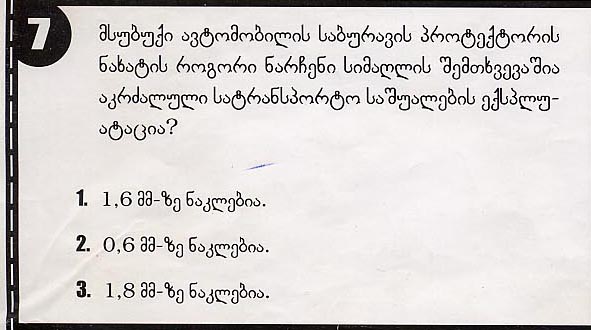 7
მსუბუქი ავტომობილის საბურავის პროტექტორის
ნახატის როგორი ნარჩენი სიმაღლის შემთხვევაშია
აკრძალული სატრანსპორტო საშუალების ექსპლუ-
ატაცია?
1. 1,6 მმ-ზე ნაკლებია.
2. 0,6 მმ-ზე ნაკლებია.
3. 1,8 მმ-ზე ნაკლებია.